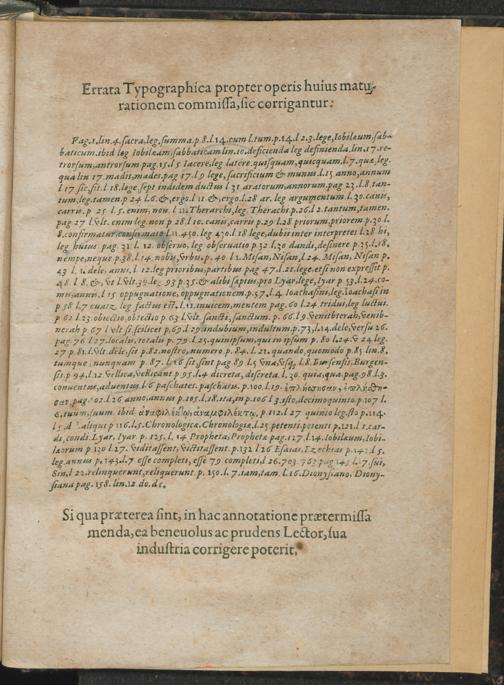 Errata Typographica propter operis huius matu-
rationem commissa, sic corrigantur:
Pag. 1. lin. 4. sacra, leg, summa. p. 8. l. 14. cum l. tum. p. 14. l 2. 3. lege, Iobileum, sab-
baticum. ibid leg Iobileam, sabbaticam lin. 10. deficienda leg definienda, lin. 17. re-
trorsum, antrorsum pag. 15. l 5 Iacere, leg latere. quisquam, quicquam. l. 7. quæ, leg.
qua lin 17. madit, madet pag 17. l. 9 lege, sacrificium & munus l. 15 anno, annum
l 17 sic, sit. l. 18. lege, sept indidem ductus l 31 aratorum, annorum. pag 23. l. 8. tan-
tum, leg. tamen p 24 l. 6. &, ergo. l 11 &, ergo. l. 28 ar. leg argumentum l. 30. canis,
carri. p 25 l 5. enim, non. l 11. Therarchi, leg. Therachi p. 26. l 2. tantum, tamen.
pag 27 l. vlt. enim leg. non p 28. l 10. canis, carri p 29. l 28 priorum, priorem p. 30 l.
8. confirmatur, confirmato l 11. 450. leg 430. l 18 lege, dubii inter interpretes l. 28 hi,
leg huius pag. 31 l. 12. observo, leg observatio p 32 l. 30 dandi, desinere p 35. l. 18.
nempe, neque p. 38. l. 14. nobis, vrbis, p. 40 l 1. Misan, Nisan, l 24. Misan, Nisan p.
43 l 1. dele, anni, l 12. leg prioribus, partibus pag 47. l. 21. lege, etsi non expressit p.
48 l 8. &, vt l vlt. 39. leg 93 p. 35. & alibi sapius, pro Lyar, lege, Iyar p 53. l. 24. co-
mu, anni, l 15 oppugnationes, oppugnationem, p. 57. l. 4 Ioachasini, leg. Ioachasim
p 58 l. 7 leg factus est. l. 11. invicem, mentem pag. 60 l. 24. tridui, leg luctui.
p 62 l 23. obiectio, obiecto p 63 l vlt. sancti, sanctum. p. 66. l. 9 venibterab, venib-
nerah p 67 l vlt si. scilicet p. 69. l. 29 indubium, indultum. p 73. l. 14. dele, versu 26.
pag. 76 l 27. localis, totalis p. 79. l. 25. qui ipsum, qui in ipsum p. 80 l. 24. 24. leg.
27 p 81. l. vlt. dele, sit p. 82. nostro, numero p. 84. l. 21. quando, quomodo p 85 lin. 8.
tumque, nunquam p. 87. sit, sint pag 89 l 5 vna, l. 8. Burgen-
sis. p 94. l. 12 p 95. l. 4 discreta. l. 36. quia, quæ pag. 98. l. 3.
conventus, adventus l. 6 paschates. paschatis. p. 100. l. 19. ἐπλήρωσαν,
pag. 102. l. 26 anno, annos p. 105. l. 18. ita, in p. 106 l 3. isto, decimoquinto p. 107 l.
6. tuum, suum. ibid ἀναφιλέκτῳ, ἀναμφιλέκτῳ, p. 112. l 27 quinio leg. isto p. 114.
l 5. a aliqui p 116. l. 5. Chronologicæ, Chronologiæ, l. 25 petenti. potenti p. 121. l 1. car-
di, condi. Lyar, Iyar p. 125. l. 14 Propheta, Propheta pag. 127. l. 14. Iobileum, Iobi-
læorum p 130 l 27. vidit assent, p. 132. l 26 Esaias, Ezechias p. 142. l 5.
leg. annus p. 143. l. 7 esse completi, esse 79 completi, sui,
Sin, l 22. relinquerunt, reliquerunt. p. 150. l. 7. tam, tam. l. 16. Dionysiano, Diony-
siana pag. 158. lin. 12 do. de.
Si qua præterea sint, in hac annotatione prætermissa
menda, ea beneuolus ac prudens Lector, sua
industria corrigere poterit.